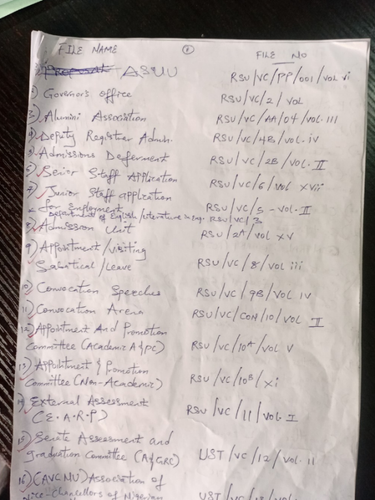 FILE NAME FILE NO
ASUU RSU/VC/PP/001/VOL vi
Governor's office RSU/VC/2/VOL
3) Alumini Association RSU/VC/AA/04/VOL.III
Deputy Registrar Admin. RSU/VC/4B/VOL.iv
Admissions RSU/VC/2B/VOL.II
Senior Staff Application RSU/VC/6/VOL XVii
7) Junior Staff application
for Employment RSU/VC/5-VOL-II
Department of English/literature in eng. RSU/VC/
8) Admission Unit RSU/2A/VOL XV
9) Appointment/visiting
Sabatical/Leave RSU/VC/8/VOL iii
10) Convocation Speeches RSU/VC/9B/VOL IV
11) Convocation Arena RSU/VC/CON/10/VOL I
12) Appointment And Promotion
Committee (Academic A & PC) RSU/VC/10A/VOL V
13) Appointment & Promotion
Committee (Non-Academic) RSU/VC/10B/Xi
14) External Assessment
(E.A.R.P) RSU/VC/11/VOL.I
15) Senate Assessment and
Graduation Committee (A&GRC) UST/VC/12/VOL.11
16) (AVCNU) Association of
Vice-Chancellors of Nigerian UST/VC